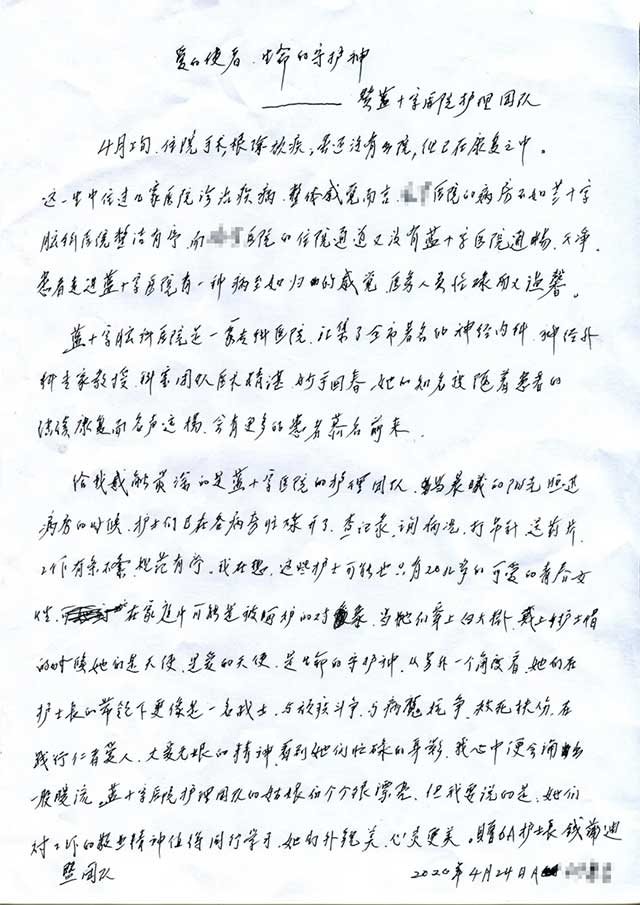 爱的使者、生命的守护神
——赞蓝十字医院护理团队
4月上旬、住院手术根除顽疾、虽还没有出院,但已在康复之中。
这一生中住过几家医院诊治疾病、整体感觉而言、医院的病房不如蓝十字
脑科医院整洁有序、而医院的住院通道又没有蓝十字医院通畅、干净、
患者走进蓝十字医院有一种病至如归的感觉、医务人员忙碌而又温馨。
蓝十字脑科医院是一家专科医院、汇集了全市著名的神经内科、神经外
科专家教授、科室团队医术精湛、妙手回春、她的知名度随着患者的
陆续康复而名声远扬、会有更多的患者慕名前来、
给我感触最深的是蓝十字医院的护理团队、当晨曦的阳光照进
病房的时候、护士们已在各病房忙碌开了、查记录、询病况、打吊针、送药片、
工作有条不紊、规范有序、我在想、这些护士可能也只有20几岁的可爱的青春女
性、在家庭中可能是被呵护的对象、当她们穿上白大褂、戴上护士帽
的时候她们是天使、是爱的天使、是生命的守护神、从另外一个角度看、她们在
护士长的带领下更像是一名战士、与顽疾斗争、与病魔抗争、救死扶伤、在
践行仁者爱人、大爱无垠的精神、看到她们忙碌的身影、我心中便会涌出
一股暖流。蓝十字医院护理团队的姑娘们个个很漂亮、但我要说的是、她们
对工作的敬业精神值得同行学习、她们外貌美、心灵更美。赠6A护士长钱
暨团队
2020年4月24日